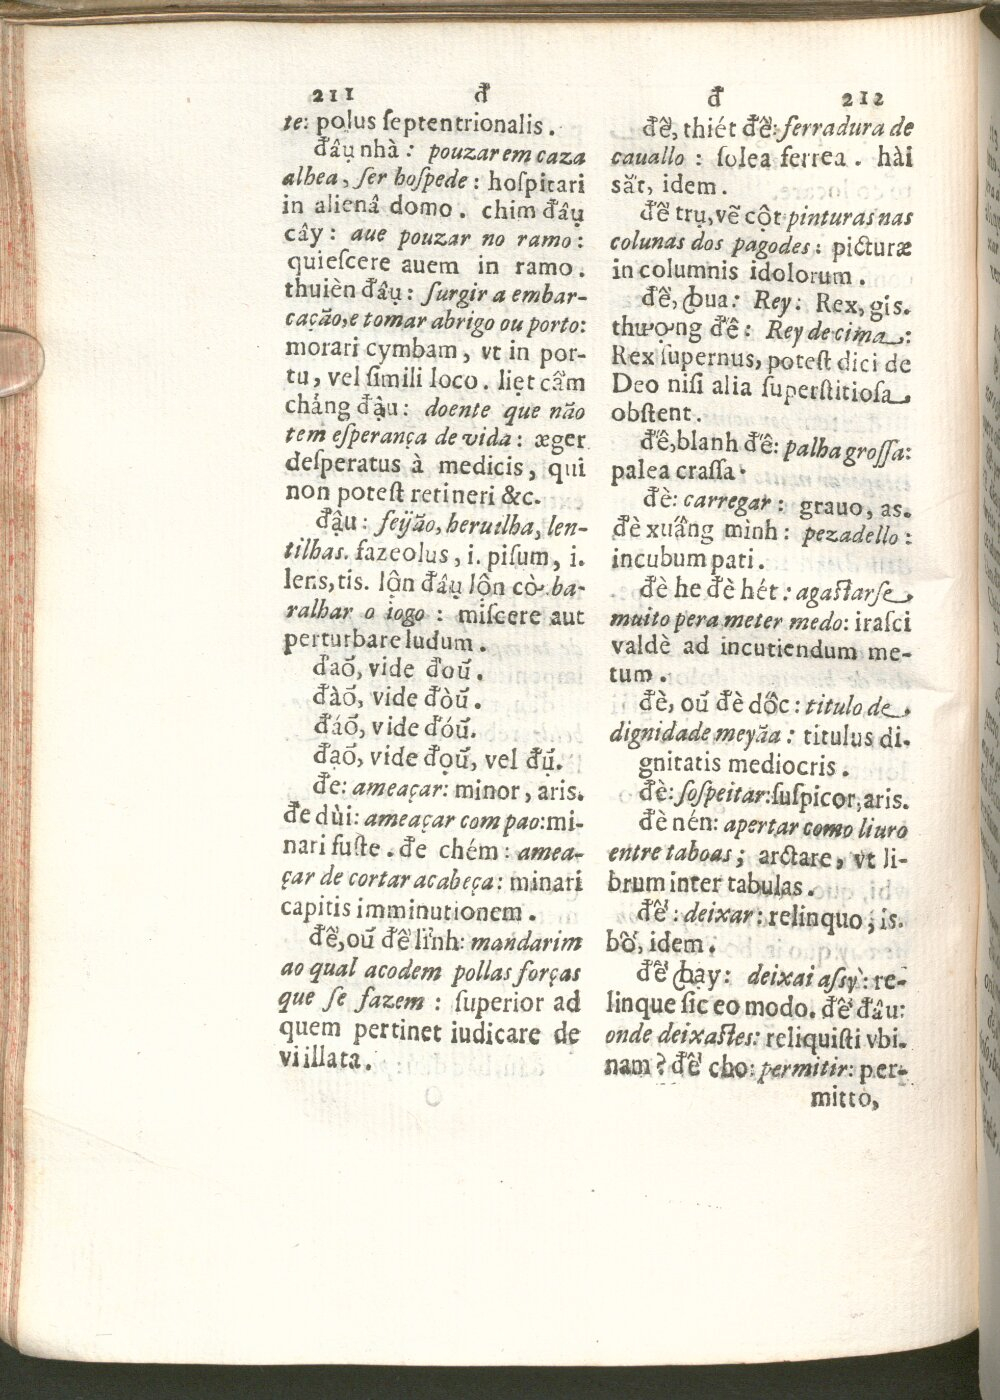 211 đ
te: polus ſeptentrionalis.
đâụ nhà: pouzar em caza
alhea, ſer hoſpede: hoſpitari
in alienâ domo. chim đâụ
cây: aue pouzar no ramo:
quieſcere auem in ramo.
thuièn đâụ: ſurgir a embar-
cação, e tomar abrigo ou porto:
morari cymbam, vt in por-
tu, vel ſimili loco. liẹt cấm
chảng đậu: doente que não
tem eſperança de vida: æger
deſperatus à medicis, qui
non poteſt retineri &c.
đậu: feyjão, heruilha, len-
tilhas. fazeolus, i. piſum, i.
lens, tis. lộn đâụ lộn cờ ba-
ralhar o iogo: miſcere aut
perturbare ludum.
đao᷄, vide đou᷄.
đào᷄, vide đòu᷄.
đáo᷄, vide đóu᷄.
đạo᷄, vide đọu᷄, vel đụ᷄.
đe: ameaçar: minor, aris.
đe dùi: ameaçar com pao: mi-
nari fuſte. đe chém: amea-
çar de cortar a cabeça: minari
capitis imminutionem.
đề, ou᷄ đề lĩnh: mandarim
ao qual acodem pollas forças
que ſe fazem: ſuperior ad
quem pertinet iudicare de
vi illata.
đ 212
đề, thiét đề: ferradura de
cauallo: ſolea ferrea. hài
sắt, idem.
đề trụ, vẽ cột pinturas nas
colunas dos pagodes: picturæ
in columnis idolorum.
đề, ꞗua: Rey: Rex, gis.
thượng đế: Rey de cima:
Rex ſupernus, poteſt dici de
Deo niſi alia ſuperſtitioſa
obſtent.
đế, blanh đế: palha groſſa:
palea craſſa.
đè: carregar: grauo, as.
đè xuâ᷃ng mình: pezadello:
incubum pati.
đè he đè hét: agaſtarſe
muito pera meter medo: iraſci
valdè ad incutiendum me-
tum.
đè, ou᷄ đè dốc: titulo de
dignidade meyãa: titulus di-
gnitatis mediocris.
đè: ſoſpeitar: ſuſpicor, aris.
đè nén: apertar como liuro
entre taboas; arctare, vt li-
brum inter tabulas.
để: deixar: relinquo, is.
bỏ, idem.
để ꞗạy: deixai aſſy: re-
linque ſic eo modo. để đâu:
onde deixaſtes: reliquiſti vbi-
nam? để cho: permitir: per-
mitto,